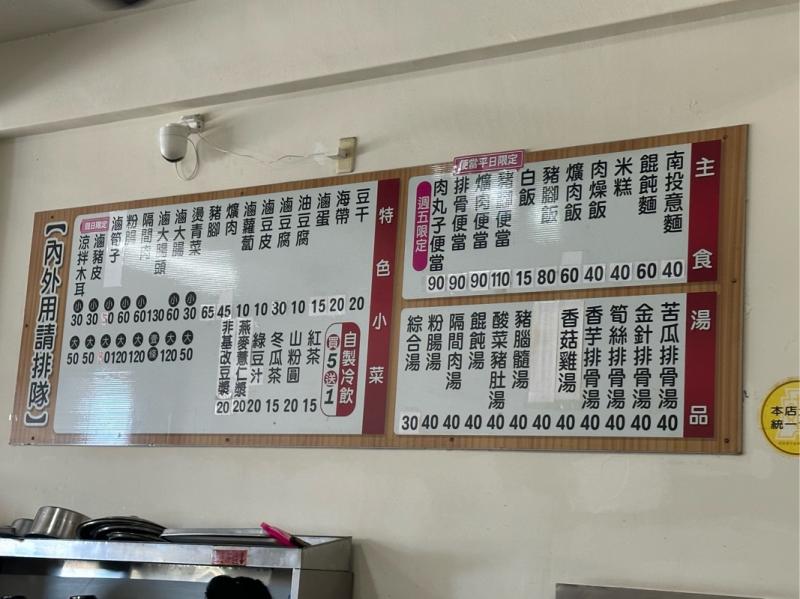 主食
南投意麵 40
餛飩麵 60
米糕 40
肉燥飯 40
爌肉飯 60
豬腳飯 80
白飯 15
便當平日限定
豬腳便當 110
爌肉便當 90
排骨便當 90
肉丸子便當 90
週五限定
湯品
苦瓜排骨湯 40
金針排骨湯 40
筍絲排骨湯 40
香芋排骨湯 40
香菇雞湯 40
豬腦髓湯
酸菜豬肚湯
餛飩湯 40
隔間肉湯 40
粉腸湯 40
綜合湯 30
特色小菜
豆干 20
海帶 20
滷蛋 15
油豆腐 10
滷豆腐 30
滷豆皮 10
滷蘿蔔 10
爌肉 45
豬腳 65
燙青菜 小30 大50
滷大腸 小60 大120
滷大腸頭 130
隔間肉 小60 大120
粉腸 小60 大120
滷筍子
假日限定
滷豬皮 小30 大50
涼拌木耳 小30 大50
自製冷飲
買5送1
紅茶 15
山粉圓 20
冬瓜茶 15
綠豆汁 20
燕麥薏仁漿 20
非基改豆漿 20
【內外用請排隊】
本店
統一